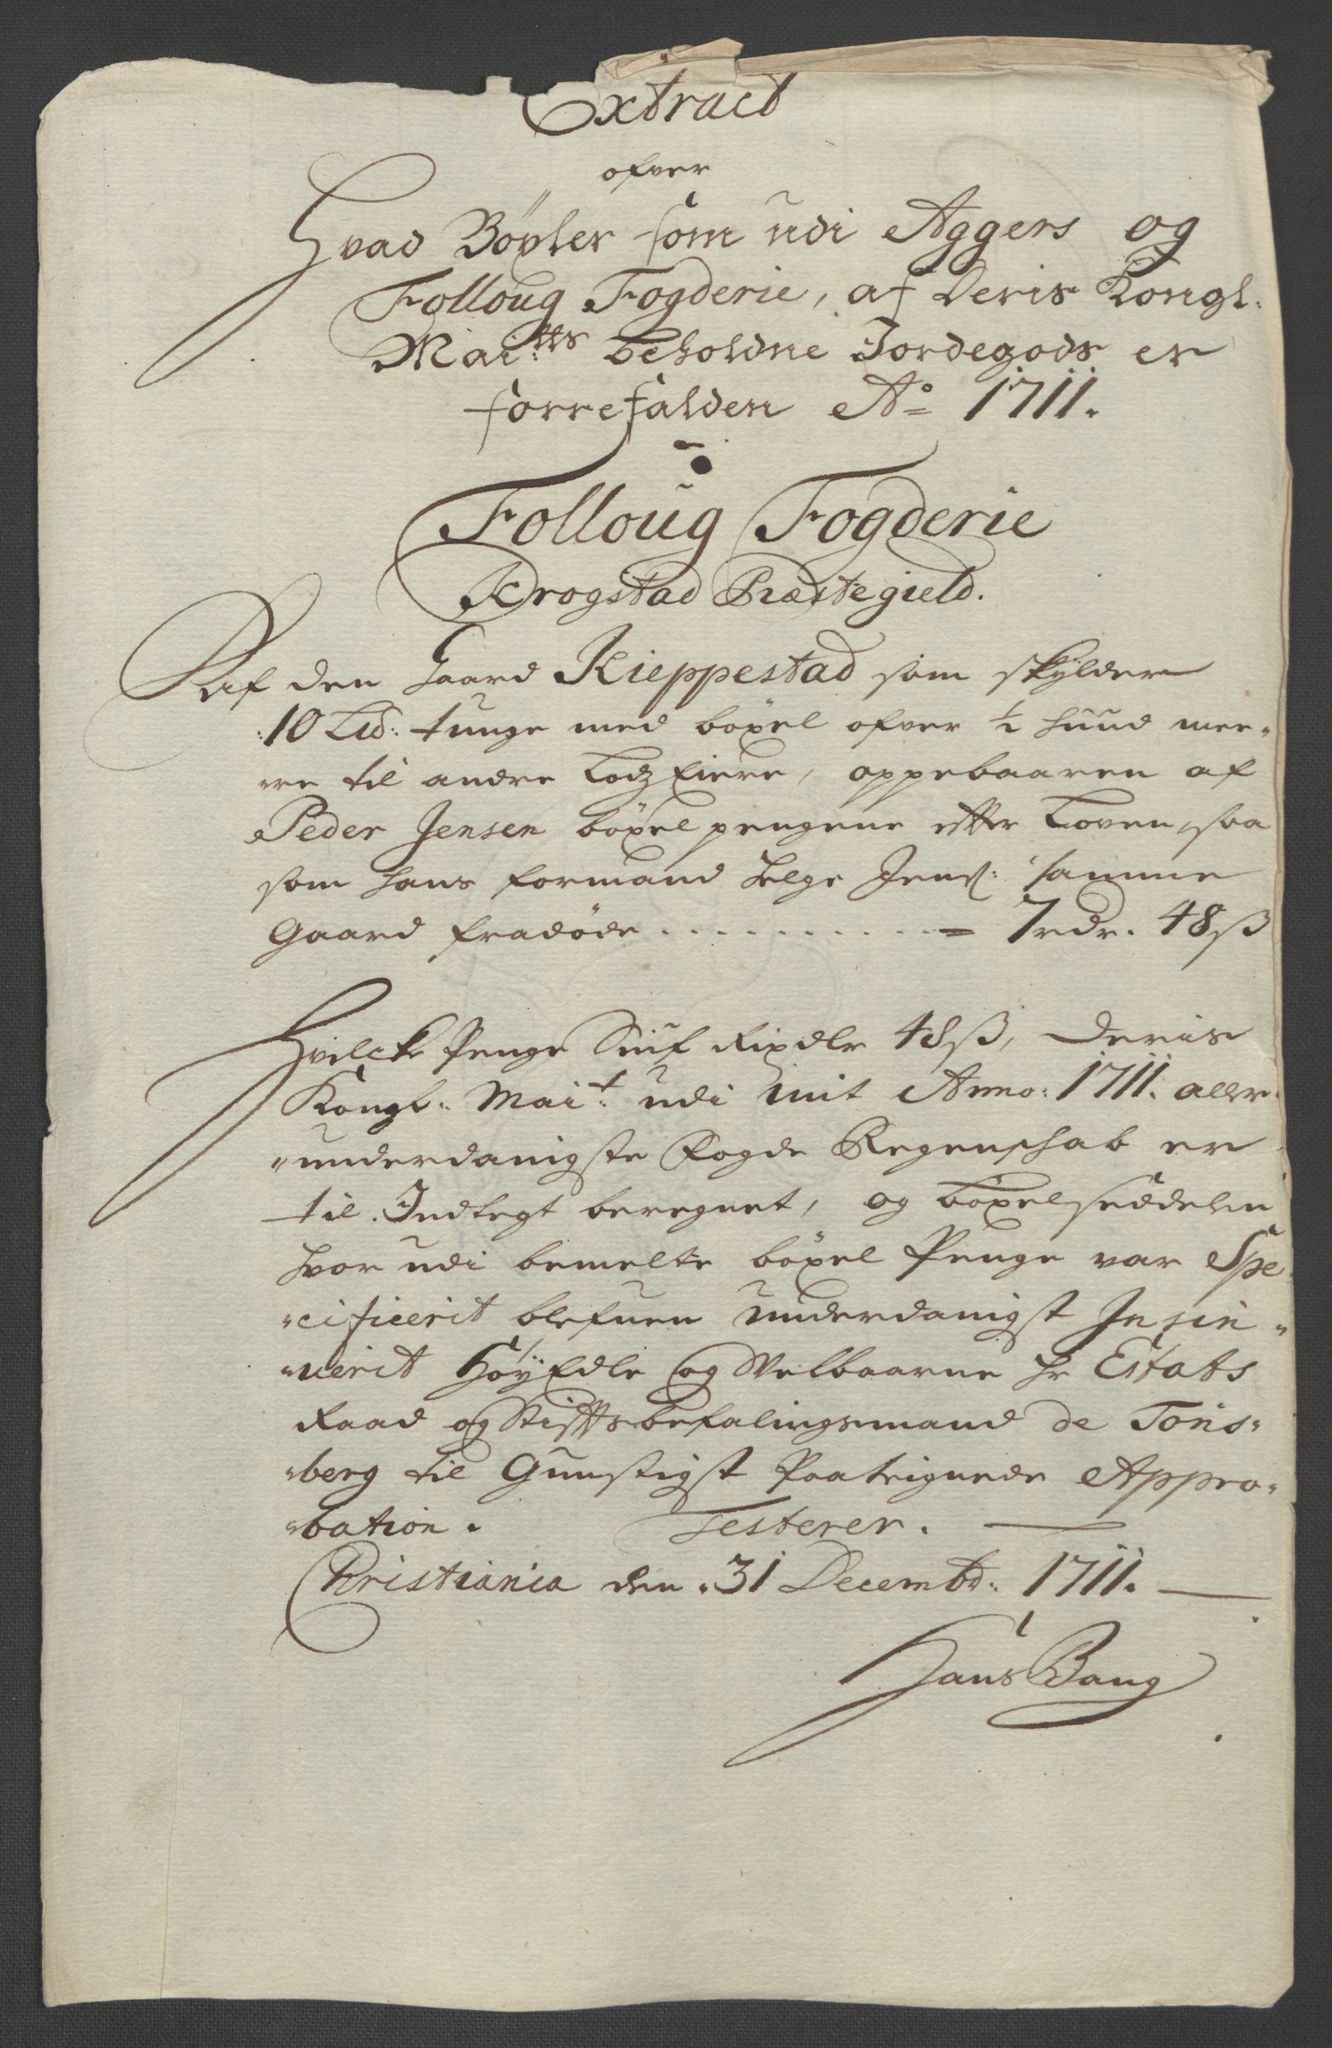 Extract
ofver
Hvad Böxler som udi Aggers og
Folloug Fogderie, af Deris Kongl.
Mai:tts beholdne Jordegods er
forrefalden Ao 1711.
Folloug Fogderie
Krogstad Præstegield.
Af den Gaard Kieppestad som skylder
10 Lid: tunge med böxel ofver ½ huud mee-
re til andre Lodz Eiere, oppebaaren af
Peder Jensen böxel pengene efter Loven, saa
som hans formand Helge Jens: samme
Gaard fradöde . . . . . . . . . . = 7 rdr. 48 ß
Hvilcke Penge Siuf Rixdlr 48 ß, Deris
Kongl. Mai:t udi mit Anno: 1711. aller-
underdanigste Fogde Regenschab er
til Indtegt beregnet, og böxelseddelen
hvor udi bemelte böxel Penge var Spe-
cificerit blefuen underdanigst Insin-
uerit HöyEdle og Welbaarne Hr Etats
Raad og Stiftsbefalingsmand de Töns-
berg til Gunstigst Paateignede Appro-
bation. Testerer.
Christiania den 31 Decembr: 1711.
Hans Bang